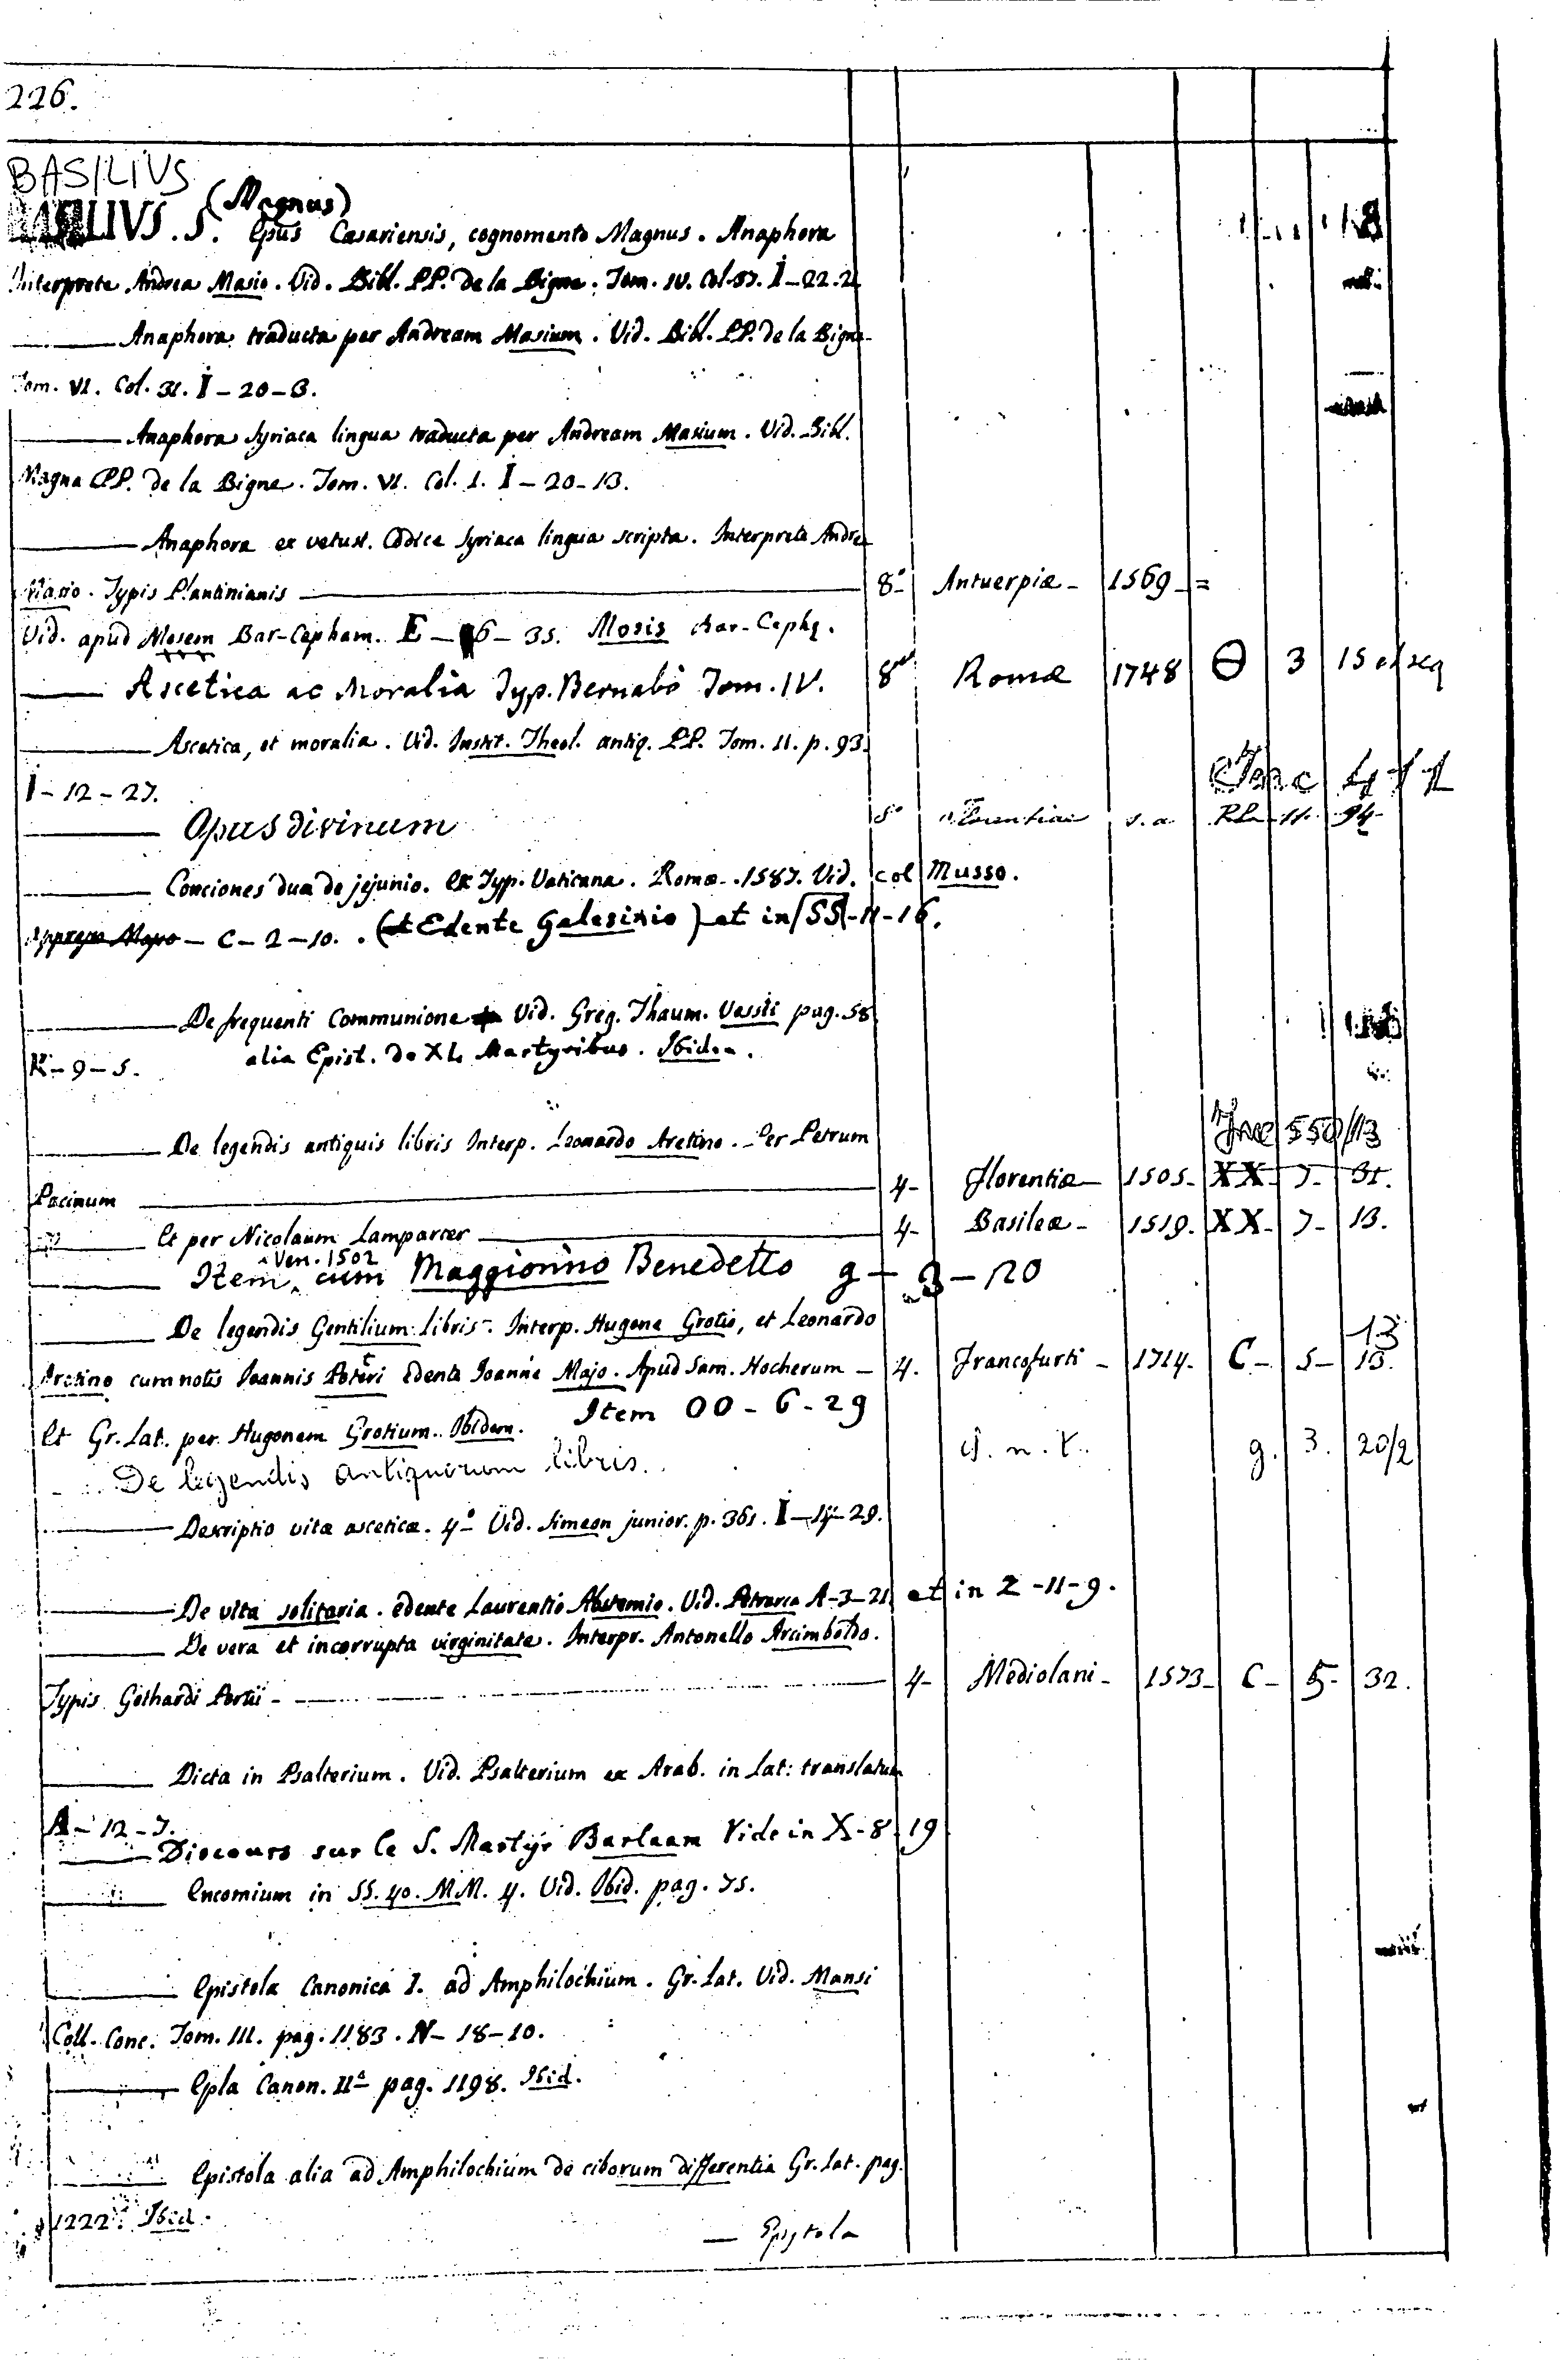 226.
BASILIUS
BASILIVS. S. (Magnus) Epus Casariensis, cognomento Magnus. Anaphora
Interprete Andrea Masio. Vid. Bibl. PP. de la Bigne. Tom. IV. Col. 57. I-22.2
Anaphora traducta per Andream Masium. Vid. Bibl. PP. de la Bigne
Tom. VI. Col. 31. I-20-B.
Anaphora Syriaca lingua traducta per Andream Masium. Vid. Bibl.
Magna PP. de la Bigne. Tom. VI. Col. 1. I-20-13.
Anaphora ex vetust. Codice Syriaca lingua scripta. Interprete Andrea
Masio. Typis Plantinianis 8º Antuerpiæ - 1569 - =
Vid. apud Mosem Bar-Cepham. E - 6 - 35. Mosis Bar-Ceph.
Ascetica ac Moralia Typ. Bernabò Tom. IV. 8 Romæ 1748 Θ 3 15 et seq
Ascetica, et moralia. Vid. Instit. Theol. antiq. PP. Tom. 11. p. 93.
I-12-27. Inc 411
Opus divinum 8º Florentiae s.a. 11. 94
Conciones duæ de jejunio. Ex Typ. Vaticana. Romæ. 1587. Vid. col Musso.
- C-2-10. (et Edente Galesinio) et in SS-11-16.
De frequenti Communione Vid. Greg. Thaum. Vossii pag. 58
alia Epist. de XL Martyribus. Ibid.
K-9-5.
De legendis antiquis libris Interp. Leonardo Aretino. Per Petrum Inc 550/13
Pacinum 4- Florentiæ 1505- XX- 7- 31.
Et per Nicolaum Lamparter 4- Basileæ- 1519. XX- 7- 13.
Item, Ven. 1502 cum Maggiorino Benedetto g-3-20
De legendis Gentilium libris. Interp. Hugone Grotio, et Leonardo 13
Aretino cum notis Joannis Poteri edente Joanne Majo. Apud Sam. Hocherum - 4. Francofurti - 1714. C- 5- 13.
Et Gr. Lat. per Hugonem Grotium. Ibidem. Item OO-6-29
De legendis antiquorum libris. S. n. t. g. 3. 20/2
Descriptio vitæ asceticæ. 4º Vid. Simeon junior. p. 361. I-14-29.
De vita solitaria. edente Laurentio Abstemio. Vid. Petrarca A-3-21 et in Z-11-9.
De vera et incorrupta virginitate. Interpr. Antonello Arcimboldo.
Typis Gothardi Portii - 4- Mediolani- 1573- C- 5- 32.
Dicta in Psalterium. Vid. Psalterium ex Arab. in Lat: translatum
A-12-7.
Discours sur le S. Martyr Barlaam Vide in X-8 19
Encomium in SS. 40. MM. 4. Vid. Ibid. pag. 75.
Epistola Canonica I. ad Amphilochium. Gr. Lat. Vid. Mansi
Coll. Conc. Tom. III. pag. 1183. N-18-10.
Epla Canon. IIª pag. 1198. Ibid.
Epistola alia ad Amphilochium de ciborum differentia Gr. Lat. pag.
1222. Ibid.
— Epistola